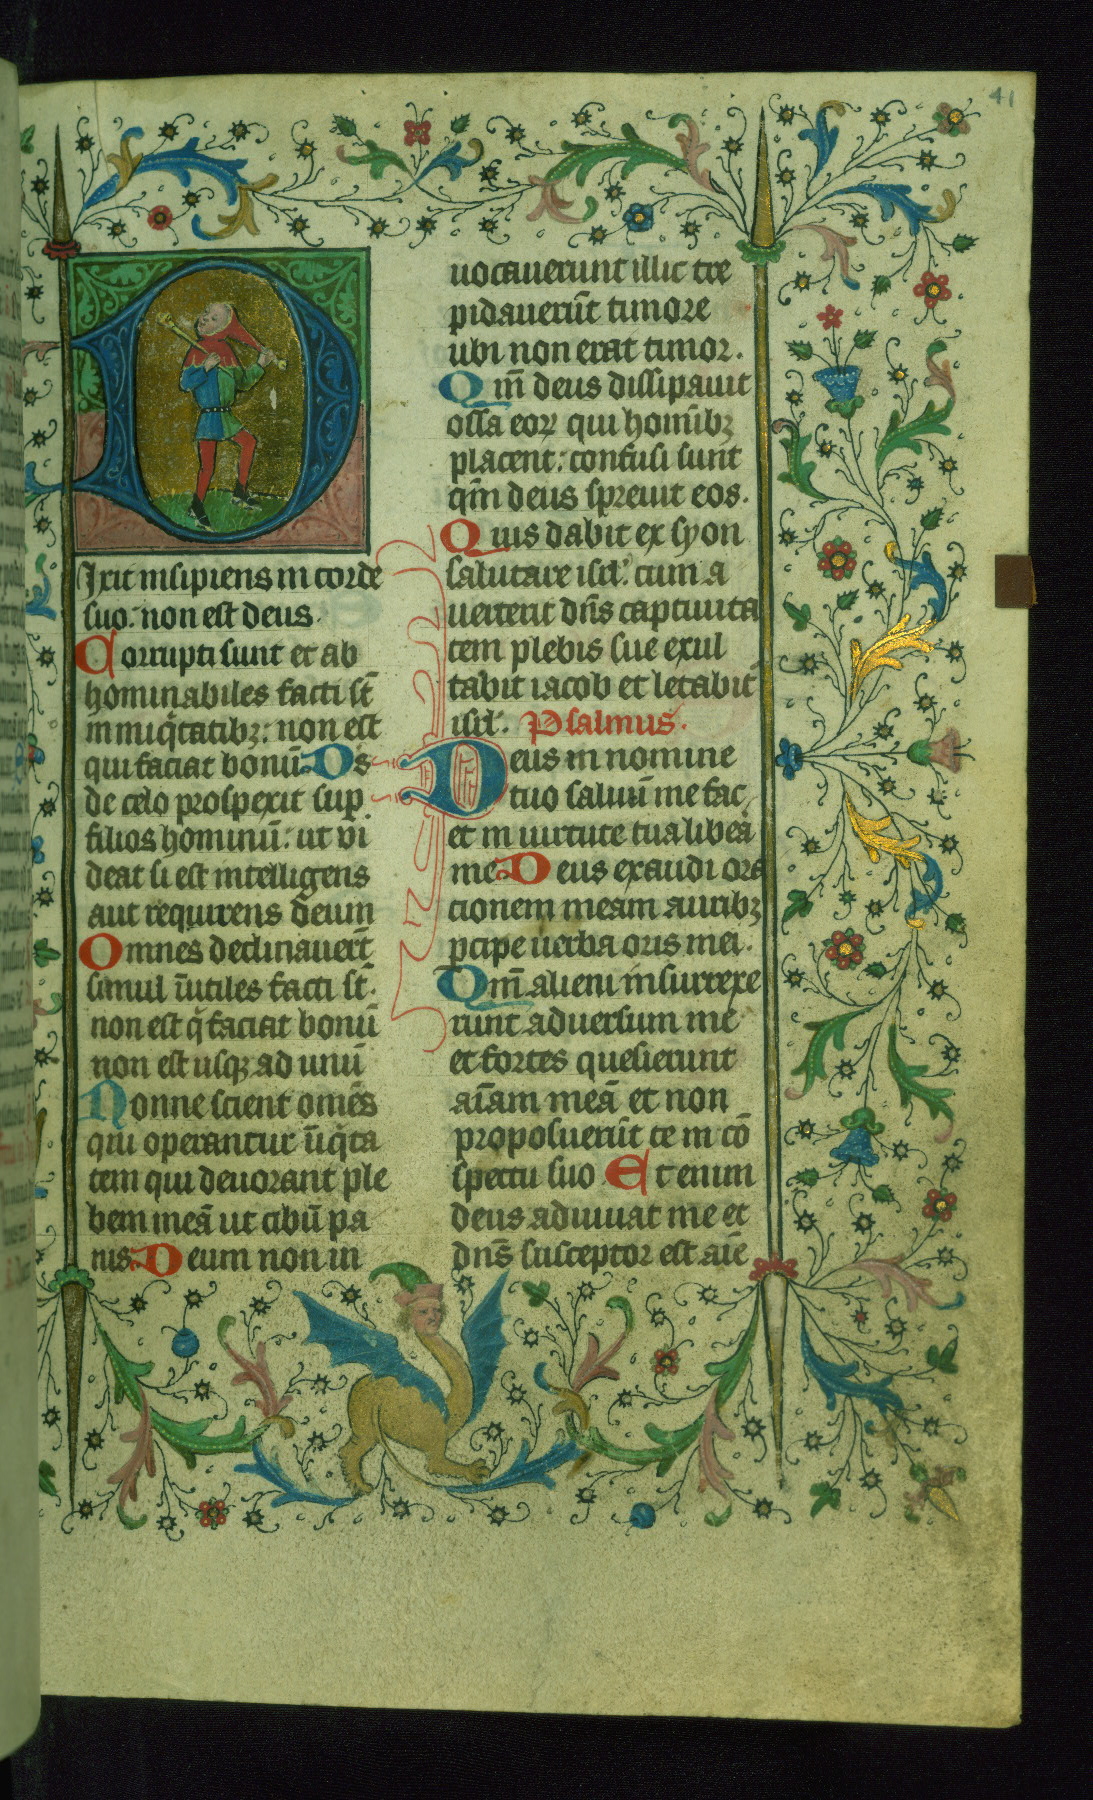 41
Dixit insipiens in corde
suo: non est deus.
Corrupti sunt et ab
hominabiles facti st̄
in iniq̇tatibꝫ: non est
qui faciat bonū. Ds
de celo prospexit sup
filios hominū: ut vi
deat si est intelligens
aut requirens deum
Omnes declinauerūt
simul īutiles facti st̄.
non est q̇ faciat bonū
non est usqꝫ ad unū
Nonne scient omēs
qui operantur īiq̇ta
tem qui deuorant ple
bem meā ut cibū pa
nis Deum non in
uocauerunt illic tre
pidauerūt timore
ubi non erat timor.
Qm̄ deus dissipauit
ossa eoꝝ qui hominībꝫ
placent: confusi sunt
qm̄ deus spreuit eos.
Quis dabit ex syon
salutare isrl: cum a
uerterit dn̄s captiuita
tem plebis sue exul
tabit iacob et letabit̄
isrl. Psalmus.
Deus in nomine
tuo saluū me fac
et in uirtute tua iudica
me Deus exaudi ora
tionem meam auribꝫ
ꝑcipe uerba oris mei.
Qm̄ alieni insurrexe
runt aduersum me
et fortes quesierunt
aīam meā et non
proposuerūt te in cō
spectu suo Et enim
deus adiuuat me et
dn̄s susceptor est aīe